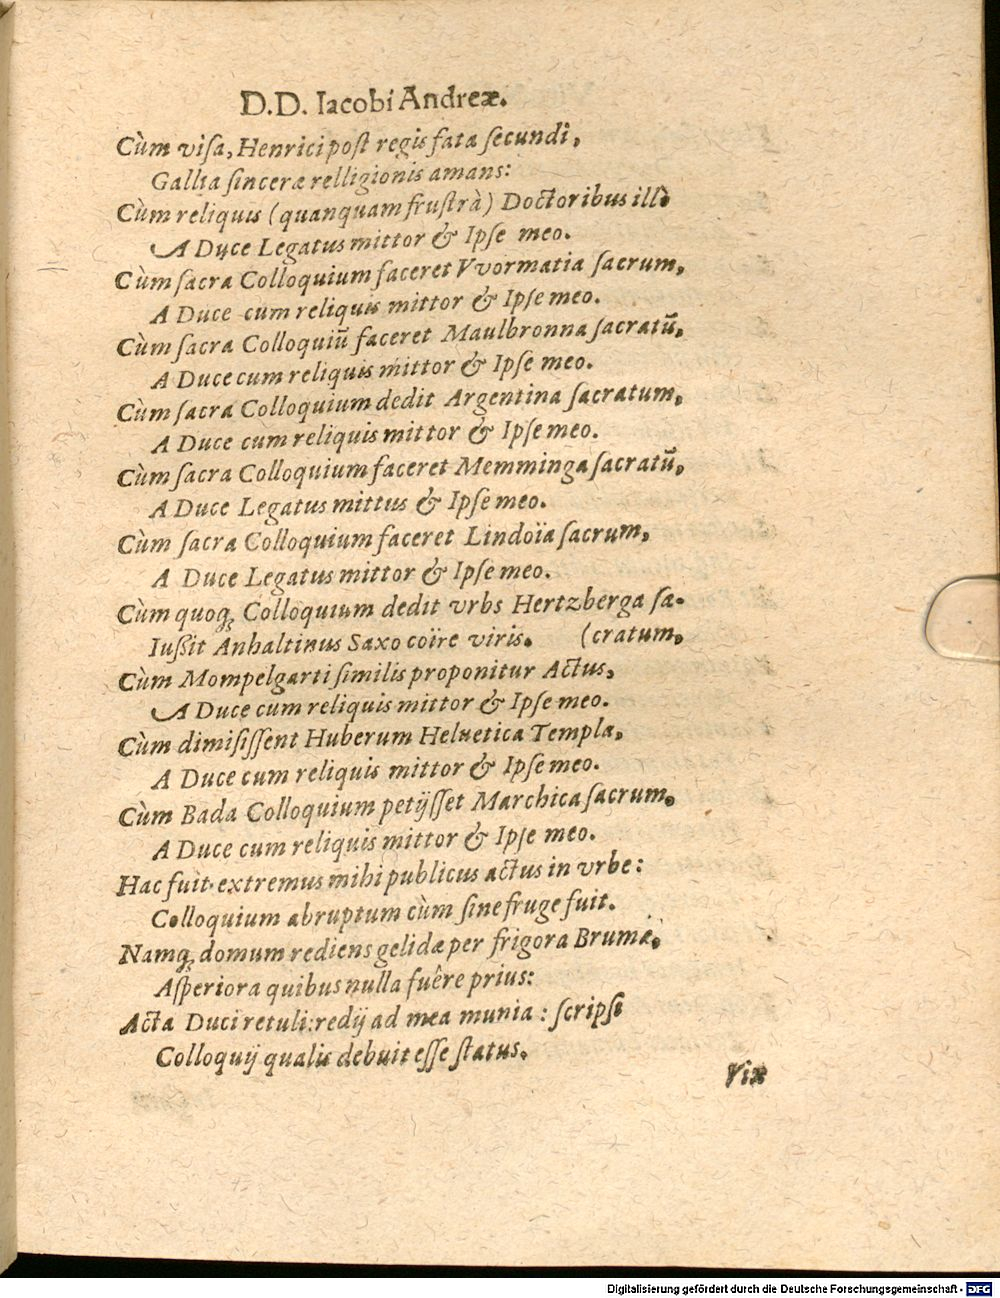 D.D. Iacobi Andreæ.
Cùm viſa, Henrici poſt regis fata ſecundi,
Gallia ſinceræ relligionis amans:
Cùm reliquis (quanquam fruſtrà) Doctoribus illò
A Duce Legatus mittor & Ipſe meo.
Cùm ſacra Colloquium faceret VVormatia ſacrum,
A Duce cum reliquis mittor & Ipſe meo.
Cùm ſacra Colloquiũ faceret Maulbronna ſacratũ,
A Duce cum reliquis mittor & Ipſe meo.
Cùm ſacra Colloquium dedit Argentina ſacratum,
A Duce cum reliquis mittor & Ipſe meo.
Cùm ſacra Colloquium faceret Memminga ſacratũ,
A Duce Legatus mittus & Ipſe meo.
Cùm ſacra Colloquium faceret Lindoïa ſacrum,
A Duce Legatus mittor & Ipſe meo.
Cùm quoq; Colloquium dedit vrbs Hertzberga ſa-
Iuſsit Anhaltinus Saxo coïre viris. (cratum,
Cùm Mompelgarti ſimilis proponitur Actus,
A Duce cum reliquis mittor & Ipſe meo.
Cùm dimiſiſſent Huberum Heluetica Templa,
A Duce cum reliquis mittor & Ipſe meo.
Cùm Bada Colloquium petijſſet Marchica ſacrum,
A Duce cum reliquis mittor & Ipſe meo.
Hac fuit extremus mihi publicus actus in vrbe:
Colloquium abruptum cùm ſine fruge fuit.
Namq; domum rediens gelidæ per frigora Brumæ,
Aſperiora quibus nulla fuêre prius:
Acta Duci retuli: redij ad mea munia: ſcripſi
Colloquij qualis debuit eſſe ſtatus.
Vix
Digitalisierung gefördert durch die Deutsche Forschungsgemeinschaft - DFG